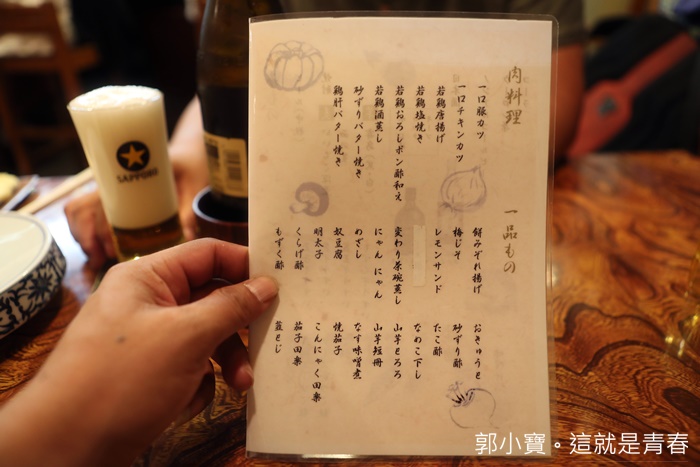 肉料理
一口豚カツ
一口チキンカツ
若鶏唐揚げ
若鶏塩焼き
若鶏おろしポン酢和え
若鶏酒蒸し
砂ずりバター焼き
鶏肝バター焼き
一品もの
餅みぞれ揚げ
梅じそ
レモンサンド
変わり茶碗蒸し
にゃんにゃん
めざし
奴豆腐
明太子
くらげ酢
もずく酢
おきゅうと
砂ずり酢
たこ酢
なめこ下し
山芋とろろ
山芋短冊
なす味噌煮
焼茄子
こんにゃく田楽
茄子田楽
韮とじ
SAPPORO
郭小寶。這就是青春